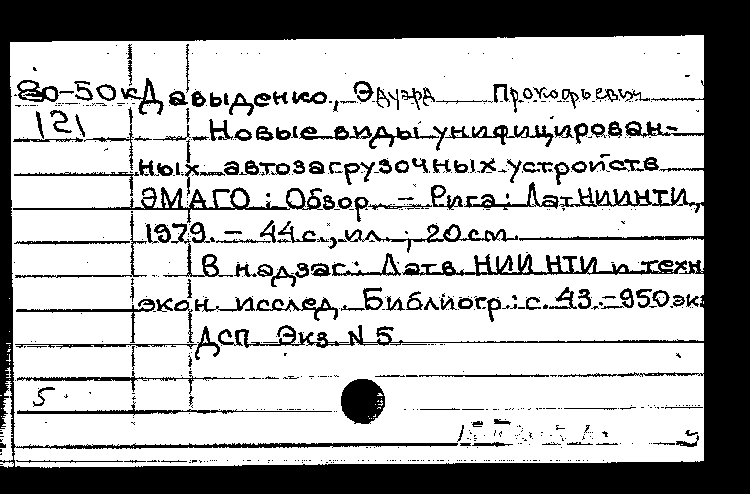 80-50к Давыденко, Эдуард Прокофьевич
121 Новые виды унифицирован-
ных автозагрузочных устройств
ЭМАГО : Обзор. – Рига : ЛатНИИНТИ,
1979. – 44 с., ил. ; 20 см.
В надзаг.: Латв. НИИ НТИ и техн.
экон. исслед. Библиогр.: с. 43. – 950 экз
ДСП. Экз. N 5.
5